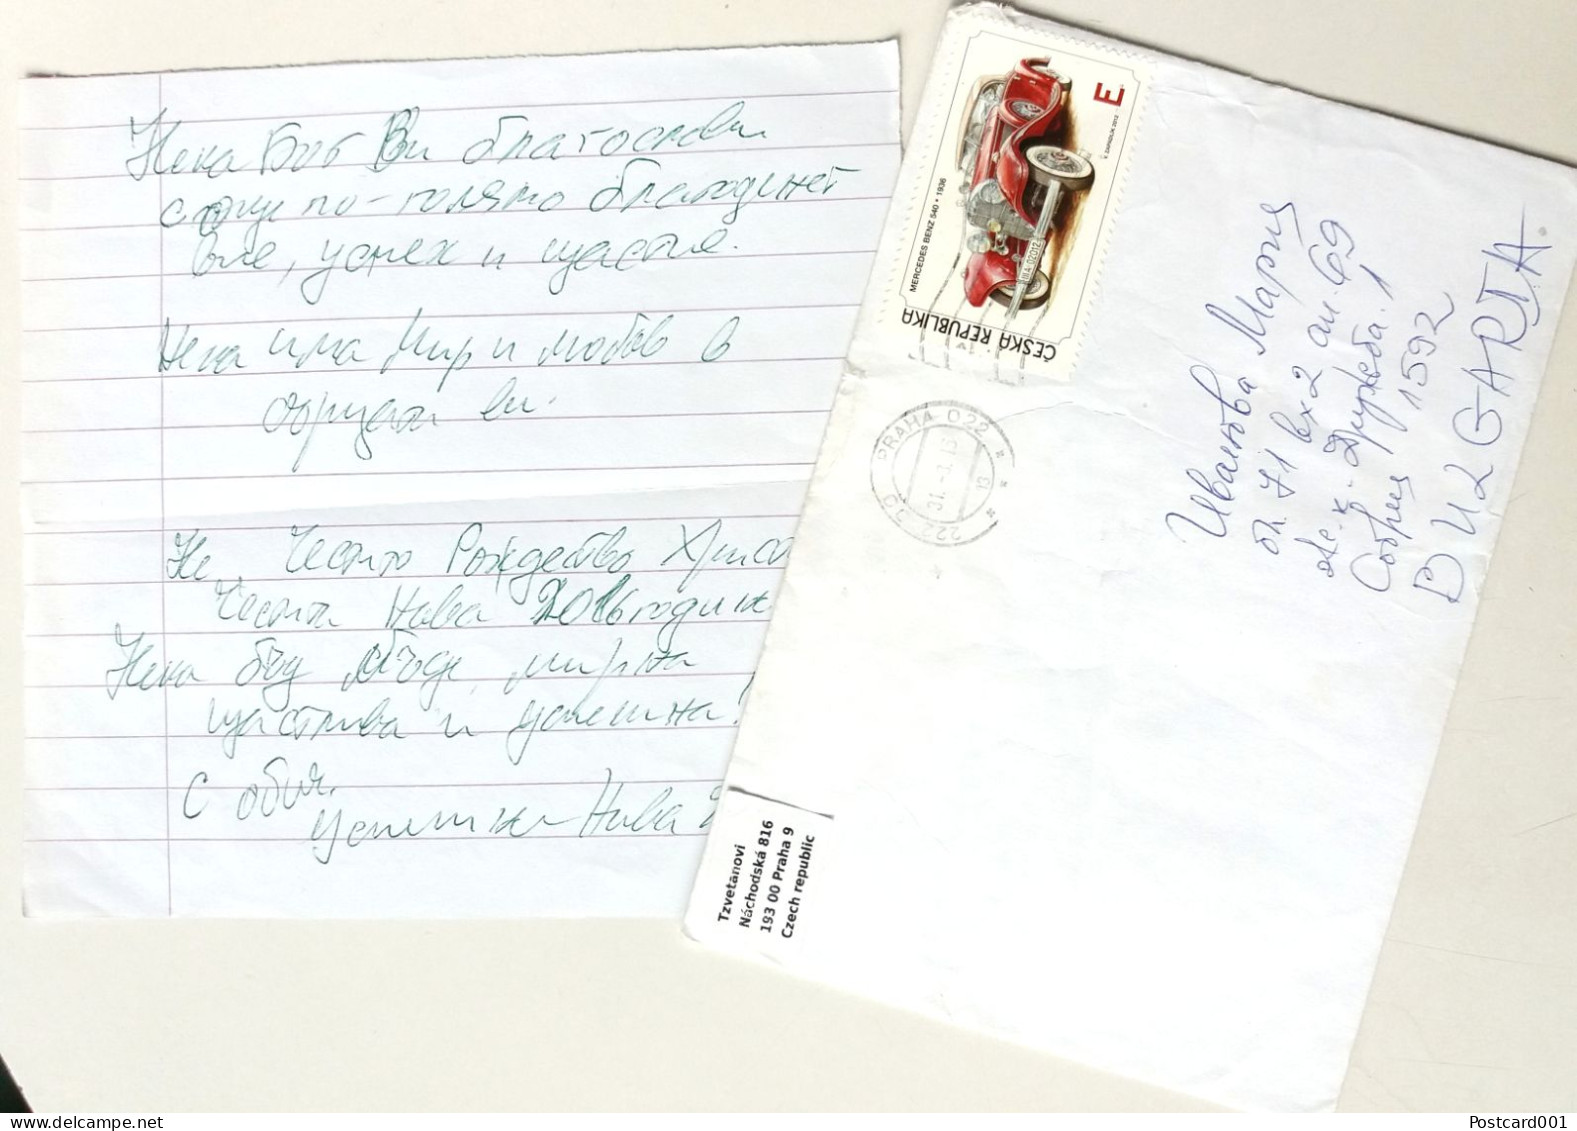 Нека Бог Ви благослови
с още по-голямо благоденст
вие, успех и щастие.
Нека има Мир и любов в
сърцата ви.
Честито Рождество Христ
Честита Нова 2016 годин
Нека бъд мирна
щастлива и успешна!
С обич.
Успешна Нова
ČESKÁ REPUBLIKA
MERCEDES BENZ 540 • 1936
E
IIIA-02012
PRAHA 022
Иванова Мария
бл. 71 вх 2 ап. 69
ж.к. Дружба. 1
София 1592
BULGARIA
Tzvetanovi
Náchodská 816
193 00 Praha 9
Czech republic
Postcard001